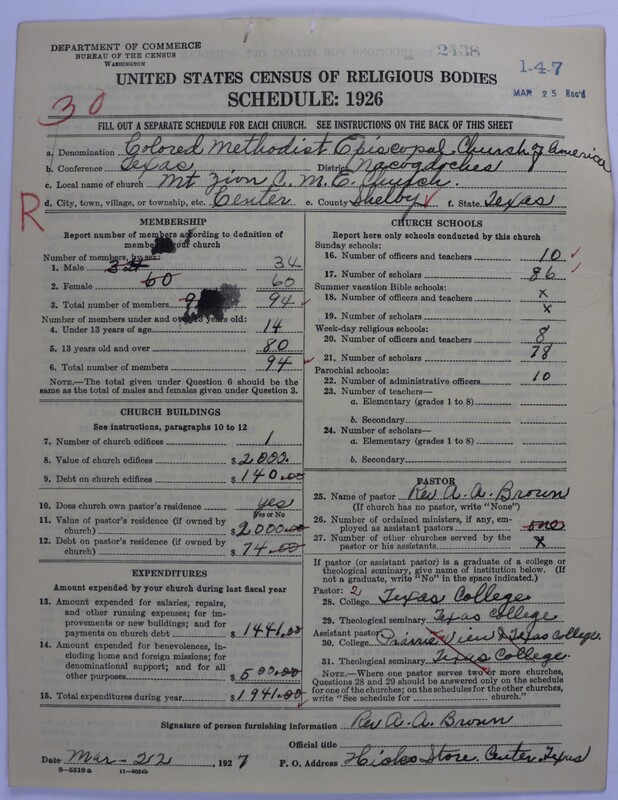 DEPARTMENT OF COMMERCE
BUREAU OF THE CENSUS
WASHINGTON
2438
1-4-7
MAR 25 Rec'd
UNITED STATES CENSUS OF RELIGIOUS BODIES
SCHEDULE: 1926
30
FILL OUT A SEPARATE SCHEDULE FOR EACH CHURCH. SEE INSTRUCTIONS ON THE BACK OF THIS SHEET
a. Denomination Colored Methodist Episcopal Church of America
b. Conference Texas District Nacogdoches
c. Local name of church Mt Zion C. M. E. Church.
R
d. City, town, village, or township, etc. Center e. County Shelby f. State Texas
MEMBERSHIP
Report number of members according to definition of member in your church
Number of members, by sex:
1. Male 34
2. Female 60 60
3. Total number of members 94
Number of members under and over 13 years old:
4. Under 13 years of age 14
5. 13 years old and over 80
6. Total number of members 94
NOTE.—The total given under Question 6 should be the same as the total of males and females given under Question 3.
CHURCH BUILDINGS
See instructions, paragraphs 10 to 12
7. Number of church edifices 1
8. Value of church edifices $ 2000.
9. Debt on church edifices $ 140.00
10. Does church own pastor's residence? yes
Yes or No
11. Value of pastor's residence (if owned by church) $ 2000.00
12. Debt on pastor's residence (if owned by church) $ 74.00
EXPENDITURES
Amount expended by your church during last fiscal year
13. Amount expended for salaries, repairs, and other running expenses; for improvements or new buildings; and for payments on church debt $ 1441.00
14. Amount expended for benevolences, including home and foreign missions; for denominational support; and for all other purposes $ 500.00
15. Total expenditures during year $ 1941.00
CHURCH SCHOOLS
Report here only schools conducted by this church
Sunday schools:
16. Number of officers and teachers 10
17. Number of scholars 86
Summer vacation Bible schools:
18. Number of officers and teachers x
19. Number of scholars x
Week-day religious schools:
20. Number of officers and teachers 8
21. Number of scholars 78
Parochial schools:
22. Number of administrative officers 10
23. Number of teachers—
a. Elementary (grades 1 to 8)
b. Secondary
24. Number of scholars—
a. Elementary (grades 1 to 8)
b. Secondary
PASTOR
25. Name of pastor Rev A. A. Brown
(If church has no pastor, write "None")
26. Number of ordained ministers, if any, employed as assistant pastors one
27. Number of other churches served by the pastor or his assistants x
If pastor (or assistant pastor) is a graduate of a college or theological seminary, give name of institution below. (If not a graduate, write "No" in the space indicated.)
Pastor: 2
28. College Texas College
29. Theological seminary Texas College
Assistant pastor
30. College Prairie View & Texas College.
31. Theological seminary Texas College.
NOTE.—Where one pastor serves two or more churches, Questions 28 and 29 should be answered only on the schedule for one of the churches; on the schedules for the other churches, write "See schedule for church."
Signature of person furnishing information Rev A. A. Brown
Official title
Date Mar-22, 1927 P. O. Address Hicks Store. Center, Texas
8—5518 a